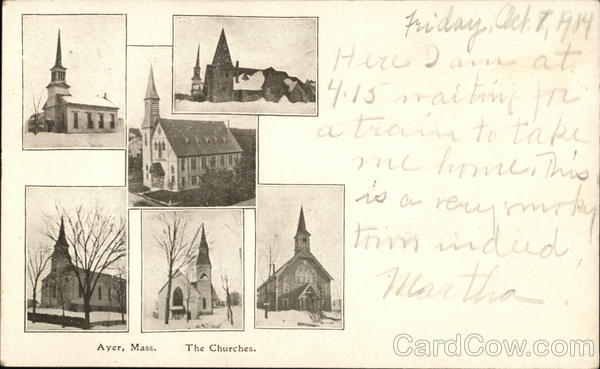 Friday, Oct. 8, 1914
Here I am at
4.15 waiting for
a train to take
me home. This
is a very smoky
town indeed.
Martha
Ayer, Mass. The Churches.
CardCow.com